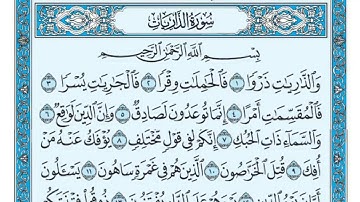 سُورَةُ الذَّارِيَاتِ
بِسْمِ اللَّهِ الرَّحْمَٰنِ الرَّحِيمِ
وَالذَّارِيَاتِ ذَرْوًا ١ فَالْحَامِلَاتِ وِقْرًا ٢ فَالْجَارِيَاتِ يُسْرًا ٣
فَالْمُقَسِّمَاتِ أَمْرًا ٤ إِنَّمَا تُوعَدُونَ لَصَادِقٌ ٥ وَإِنَّ الدِّينَ لَوَاقِعٌ ٦
وَالسَّمَاءِ ذَاتِ الْحُبُكِ ٧ إِنَّكُمْ لَفِي قَوْلٍ مُّخْتَلِفٍ ٨ يُؤْفَكُ عَنْهُ مَنْ
أُفِكَ ٩ قُتِلَ الْخَرَّاصُونَ ١٠ الَّذِينَ هُمْ فِي غَمْرَةٍ سَاهُونَ ١١ يَسْأَلُونَ